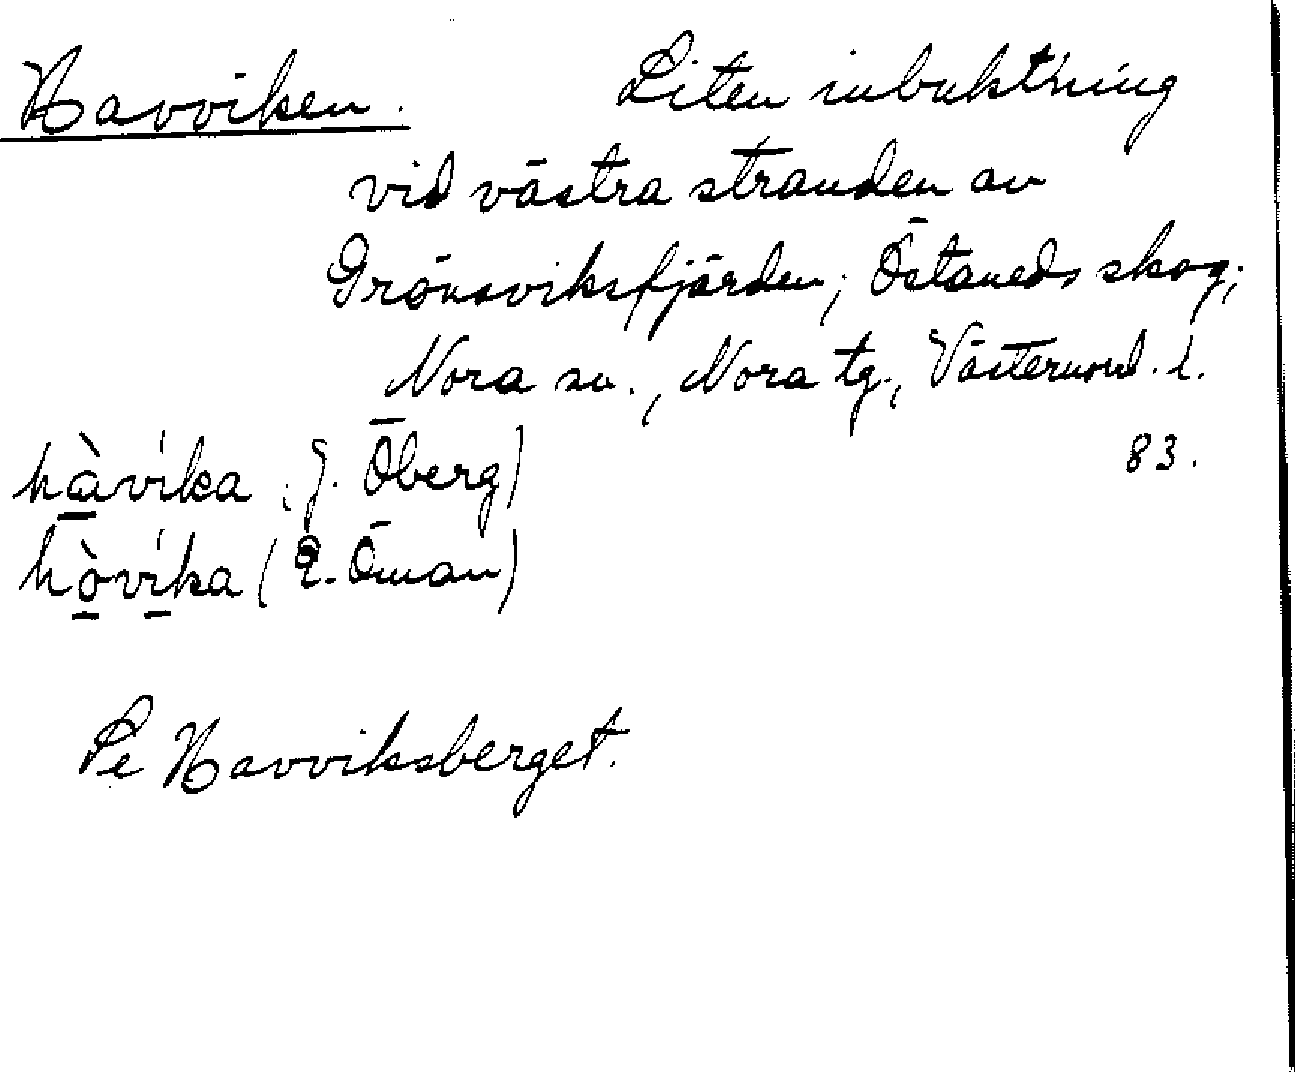 Havviken. Liten inbuktning
vid västra stranden av
Grönsviksfjärden; Östaneds skog;
Nora sn., Nora tg., Västernorrl. l.
83.
hàvika (J. Öberg)
hòvika (E. Öman)
Se Havviksberget.